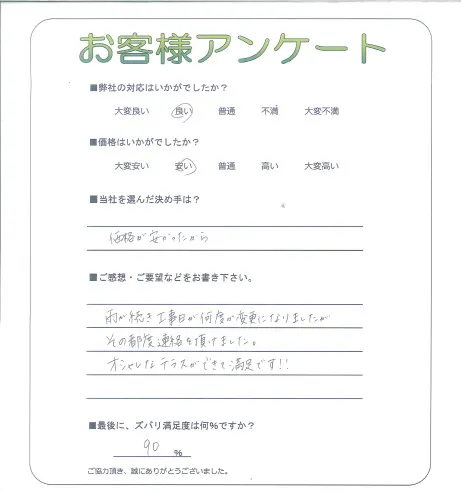 お客様アンケート
■弊社の対応はいかがでしたか？
大変良い 良い 普通 不満 大変不満
■価格はいかがでしたか？
大変安い 安い 普通 高い 大変高い
■当社を選んだ決め手は？
価格が安かったから
■ご感想・ご要望などをお書き下さい。
雨が続き工事日が何度か変更になりましたが
その都度連絡を頂けました。
オシャレなテラスができて満足です!!
■最後に、ズバリ満足度は何％ですか？
90 ％
ご協力頂き、誠にありがとうございました。